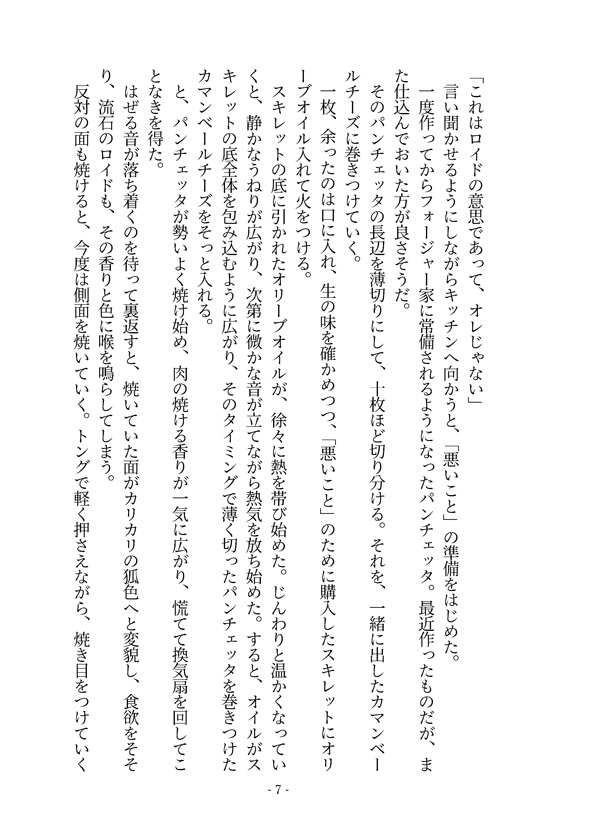 「これはロイドの意思であって、オレじゃない」
言い聞かせるようにしながらキッチンへ向かうと、「悪いこと」の準備をはじめた。
一度作ってからフォージャー家に常備されるようになったパンチェッタ。最近作ったものだが、ま
た仕込んでおいた方が良さそうだ。
そのパンチェッタの長辺を薄切りにして、十枚ほど切り分ける。それを、一緒に出したカマンベー
ルチーズに巻きつけていく。
一枚、余ったのは口に入れ、生の味を確かめつつ、「悪いこと」のために購入したスキレットにオリ
ーブオイル入れて火をつける。
スキレットの底に引かれたオリーブオイルが、徐々に熱を帯び始めた。じんわりと温かくなってい
くと、静かなうねりが広がり、次第に微かな音が立てながら熱気を放ち始めた。すると、オイルがス
キレットの底全体を包み込むように広がり、そのタイミングで薄く切ったパンチェッタを巻きつけた
カマンベールチーズをそっと入れる。
と、パンチェッタが勢いよく焼け始め、肉の焼ける香りが一気に広がり、慌てて換気扇を回してこ
となきを得た。
はぜる音が落ち着くのを待って裏返すと、焼いていた面がカリカリの狐色へと変貌し、食欲をそそ
り、流石のロイドも、その香りと色に喉を鳴らしてしまう。
反対の面も焼けると、今度は側面を焼いていく。トングで軽く押さえながら、焼き目をつけていく
- 7 -